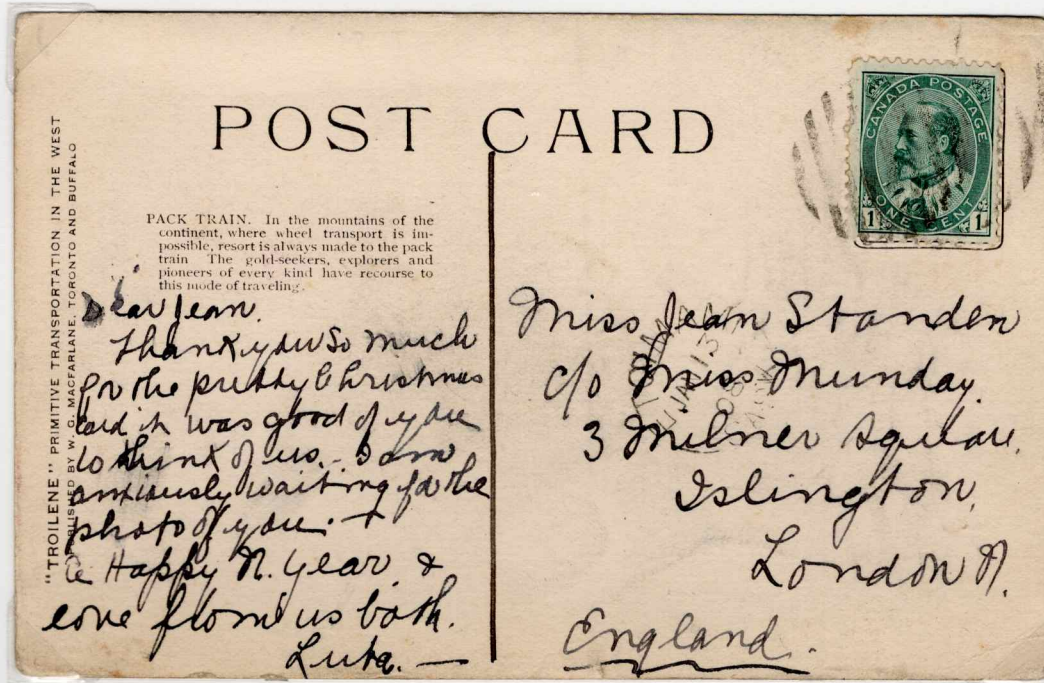 POST CARD
CANADA POSTAGE
ONE CENT
1 1
"TROILENE" PRIMITIVE TRANSPORTATION IN THE WEST
PUBLISHED BY W. G. MACFARLANE, TORONTO AND BUFFALO
PACK TRAIN. In the mountains of the
continent, where wheel transport is im-
possible, resort is always made to the pack
train The gold-seekers, explorers and
pioneers of every kind have recourse to
this mode of traveling.
Dear Jean.
Thank you so much
for the pretty Christmas
card it was good of you
to think of us. I am
anxiously waiting for the
photo of you. +
a Happy N. Year, &
love from us both.
Luta. —
Miss Jean Standen
c/o Miss Munday.
3 Milner Square.
Islington.
London N.
England.
JAN 13
08